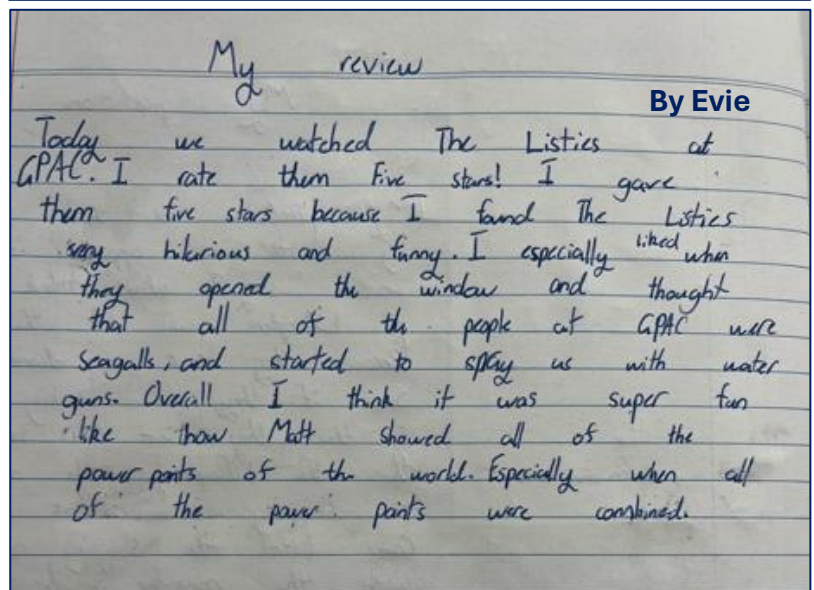 My review
By Evie
Today we watched The Listies at
GPAC. I rate them Five stars! I gave
them five stars because I found The Listies
very hilarious and funny. I especially liked when
they opened the window and thought
that all of the people at GPAC were
seagalls, and started to spray us with water
guns. Overall I think it was super fun
like how Matt showed all of the
power points of the world. Especially when all
of the power points were combined.